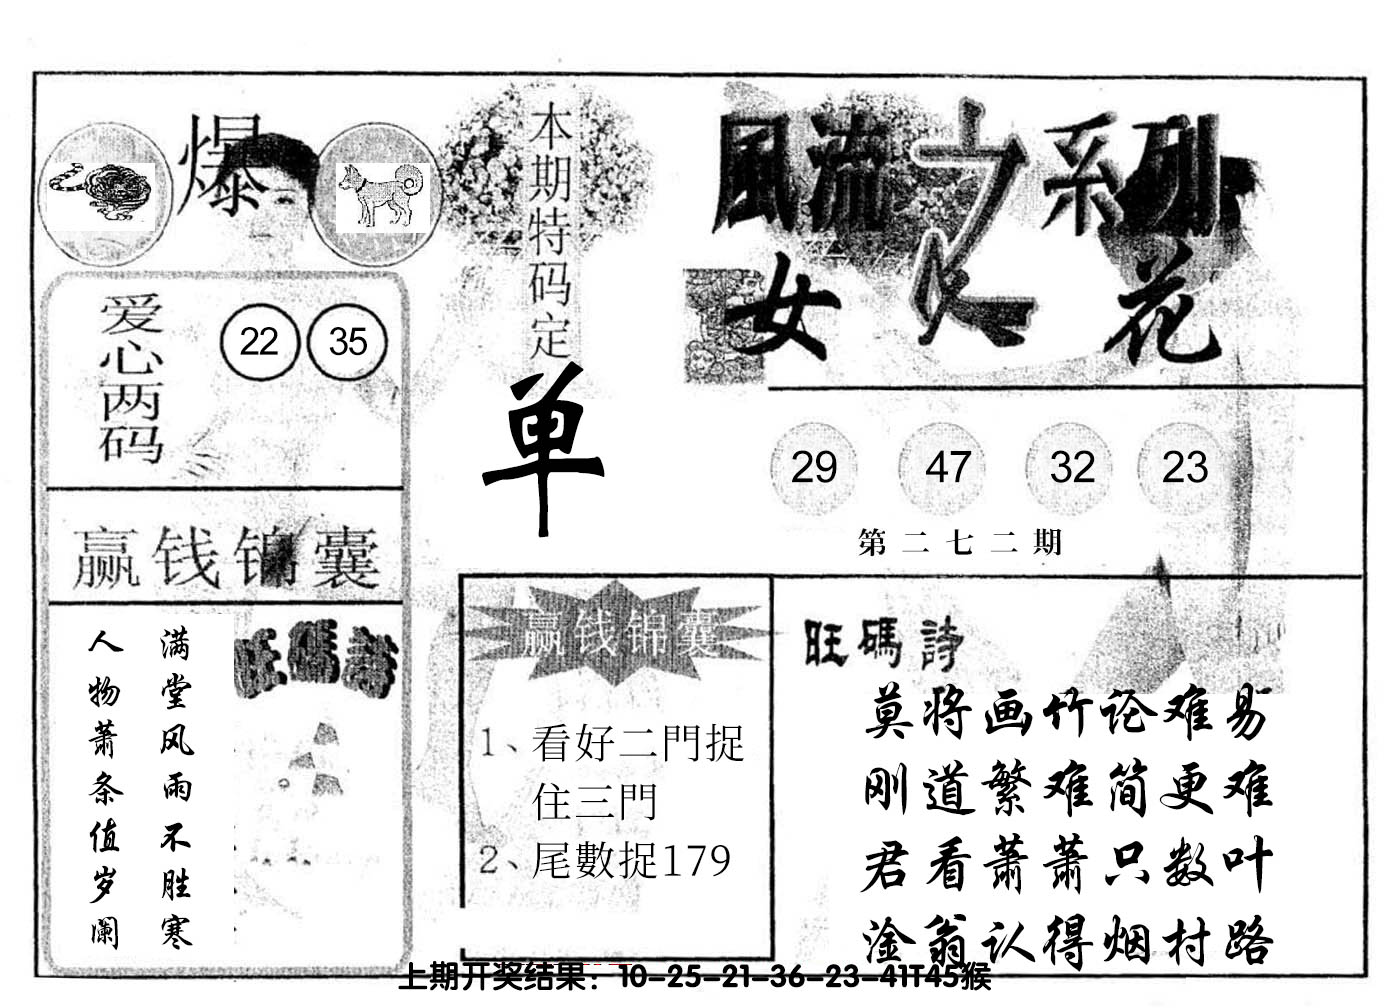 爆
本期特码定
单
風流之系列
女人花
爱心两码
22 35
29 47 32 23
第二七二期
赢钱锦囊
旺碼詩
满堂风雨不胜寒
人物萧条值岁阑
赢钱锦囊
1、看好二門捉
住三門
2、尾數捉179
旺碼詩
莫将画竹论难易
刚道繁难简更难
君看萧萧只数叶
淦翁认得烟村路
上期开奖结果：10-25-21-36-23-41T45猴